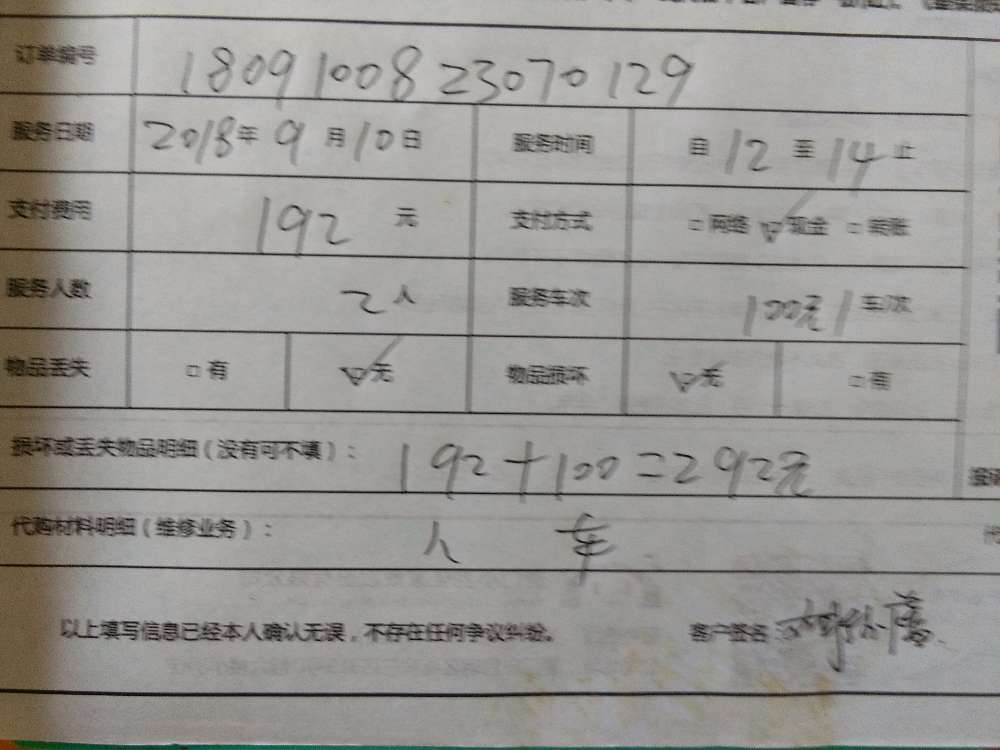 订单编号 1809100823070129
服务日期 2018年9月10日 服务时间 自12至14止
支付费用 192元 支付方式 □网络 ☑现金 □转账
服务人数 2人 服务车次 100元1车/次
物品丢失 □有 ☑无 物品损坏 ☑无 □有
损坏或丢失物品明细（没有可不填）： 192+100=292元
代购材料明细（维修业务）： 人 车
以上填写信息已经本人确认无误，不存在任何争议纠纷。 客户签名